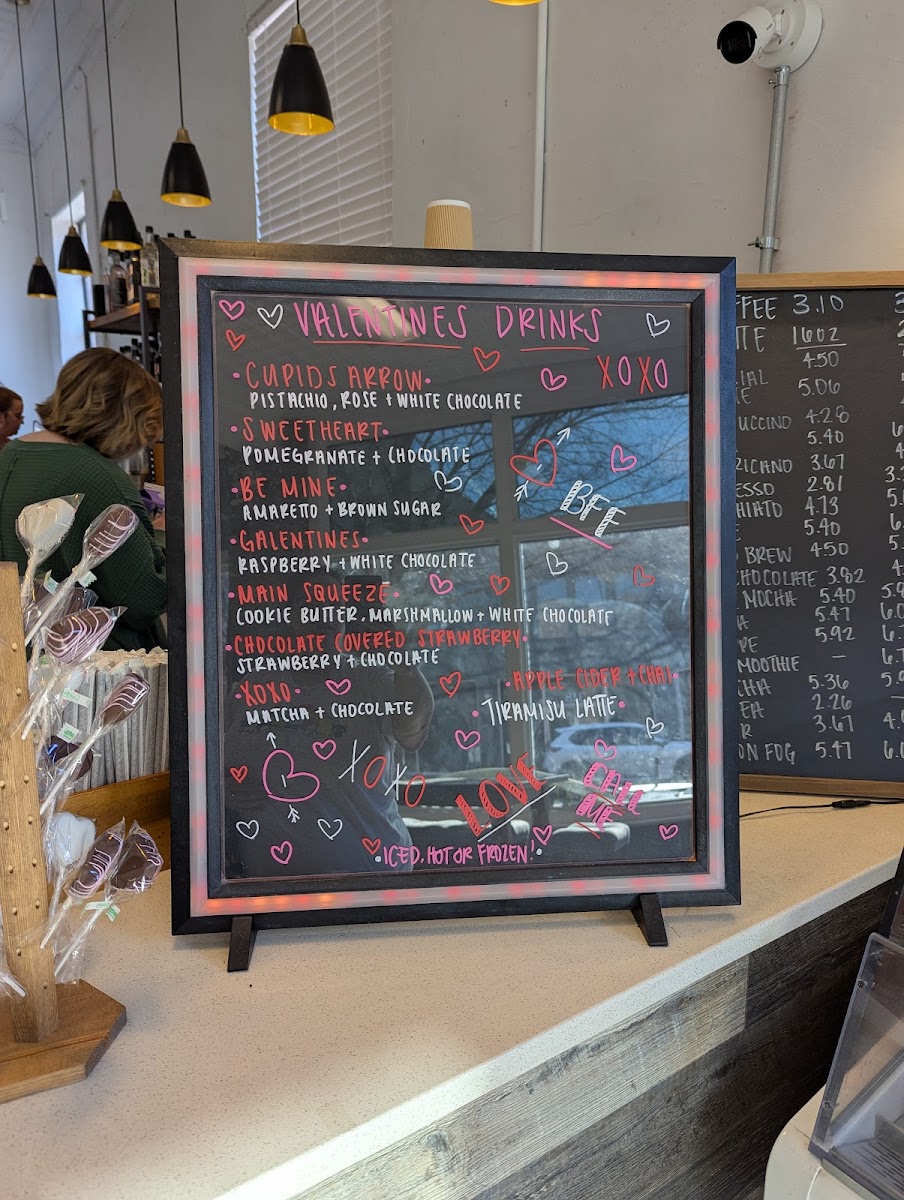 VALENTINES DRINKS
XOXO
• CUPIDS ARROW •
PISTACHIO, ROSE + WHITE CHOCOLATE
• SWEETHEART •
POMEGRANATE + CHOCOLATE
• BE MINE •
AMARETTO + BROWN SUGAR
BFF
• GALENTINES •
RASPBERRY + WHITE CHOCOLATE
• MAIN SQUEEZE •
COOKIE BUTTER, MARSHMALLOW + WHITE CHOCOLATE
• CHOCOLATE COVERED STRAWBERRY •
STRAWBERRY + CHOCOLATE
• XOXO •
MATCHA + CHOCOLATE
• APPLE CIDER + CHAI •
• TIRAMISU LATTE •
XOXO
LOVE
CALL
ME
• ICED, HOT OR FROZEN! •
FFEE 3.10
TE 16OZ
4.50
IAL 5.06
UCCINO 4.28
5.40
RICANO 3.67
ESSO 2.81
HIATO 4.73
5.40
BREW 4.50
CHOCOLATE 3.82
MOCHA 5.40
A 5.47
PE 5.92
MOOTHIE —
CHA 5.36
EA 2.26
R 3.67
ON FOG 5.47